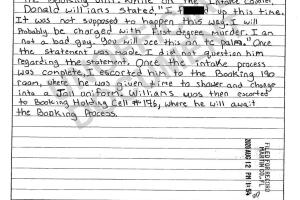 the Booking Unit, while on the Intake Corridor
Donald Williams stated I F up this time.
It was not supposed to happen this way. I will
Probably be charged with first degree murder. I am
not a bad guy. You will see this on tc palm. Once
the statement was made I did not question him
regarding the statement. Once the intake process
was complete, I escorted him to the Booking 190
room, where he was given time to shower and change
into a Jail uniform. Williams was then escorted
to Booking Holding Cell #176, where he will await
the Booking Process.
FILED FOR RECORD
MARTIN CO., FL
2020 AUG 12 PM 1:54